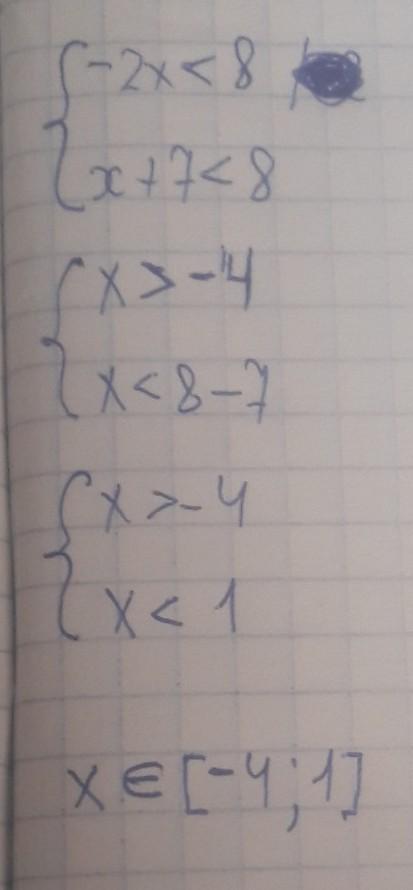 -2x < 8
x + 7 < 8
x > -4
x < 8 - 7
x > -4
x < 1
x ∈ [-4; 1]